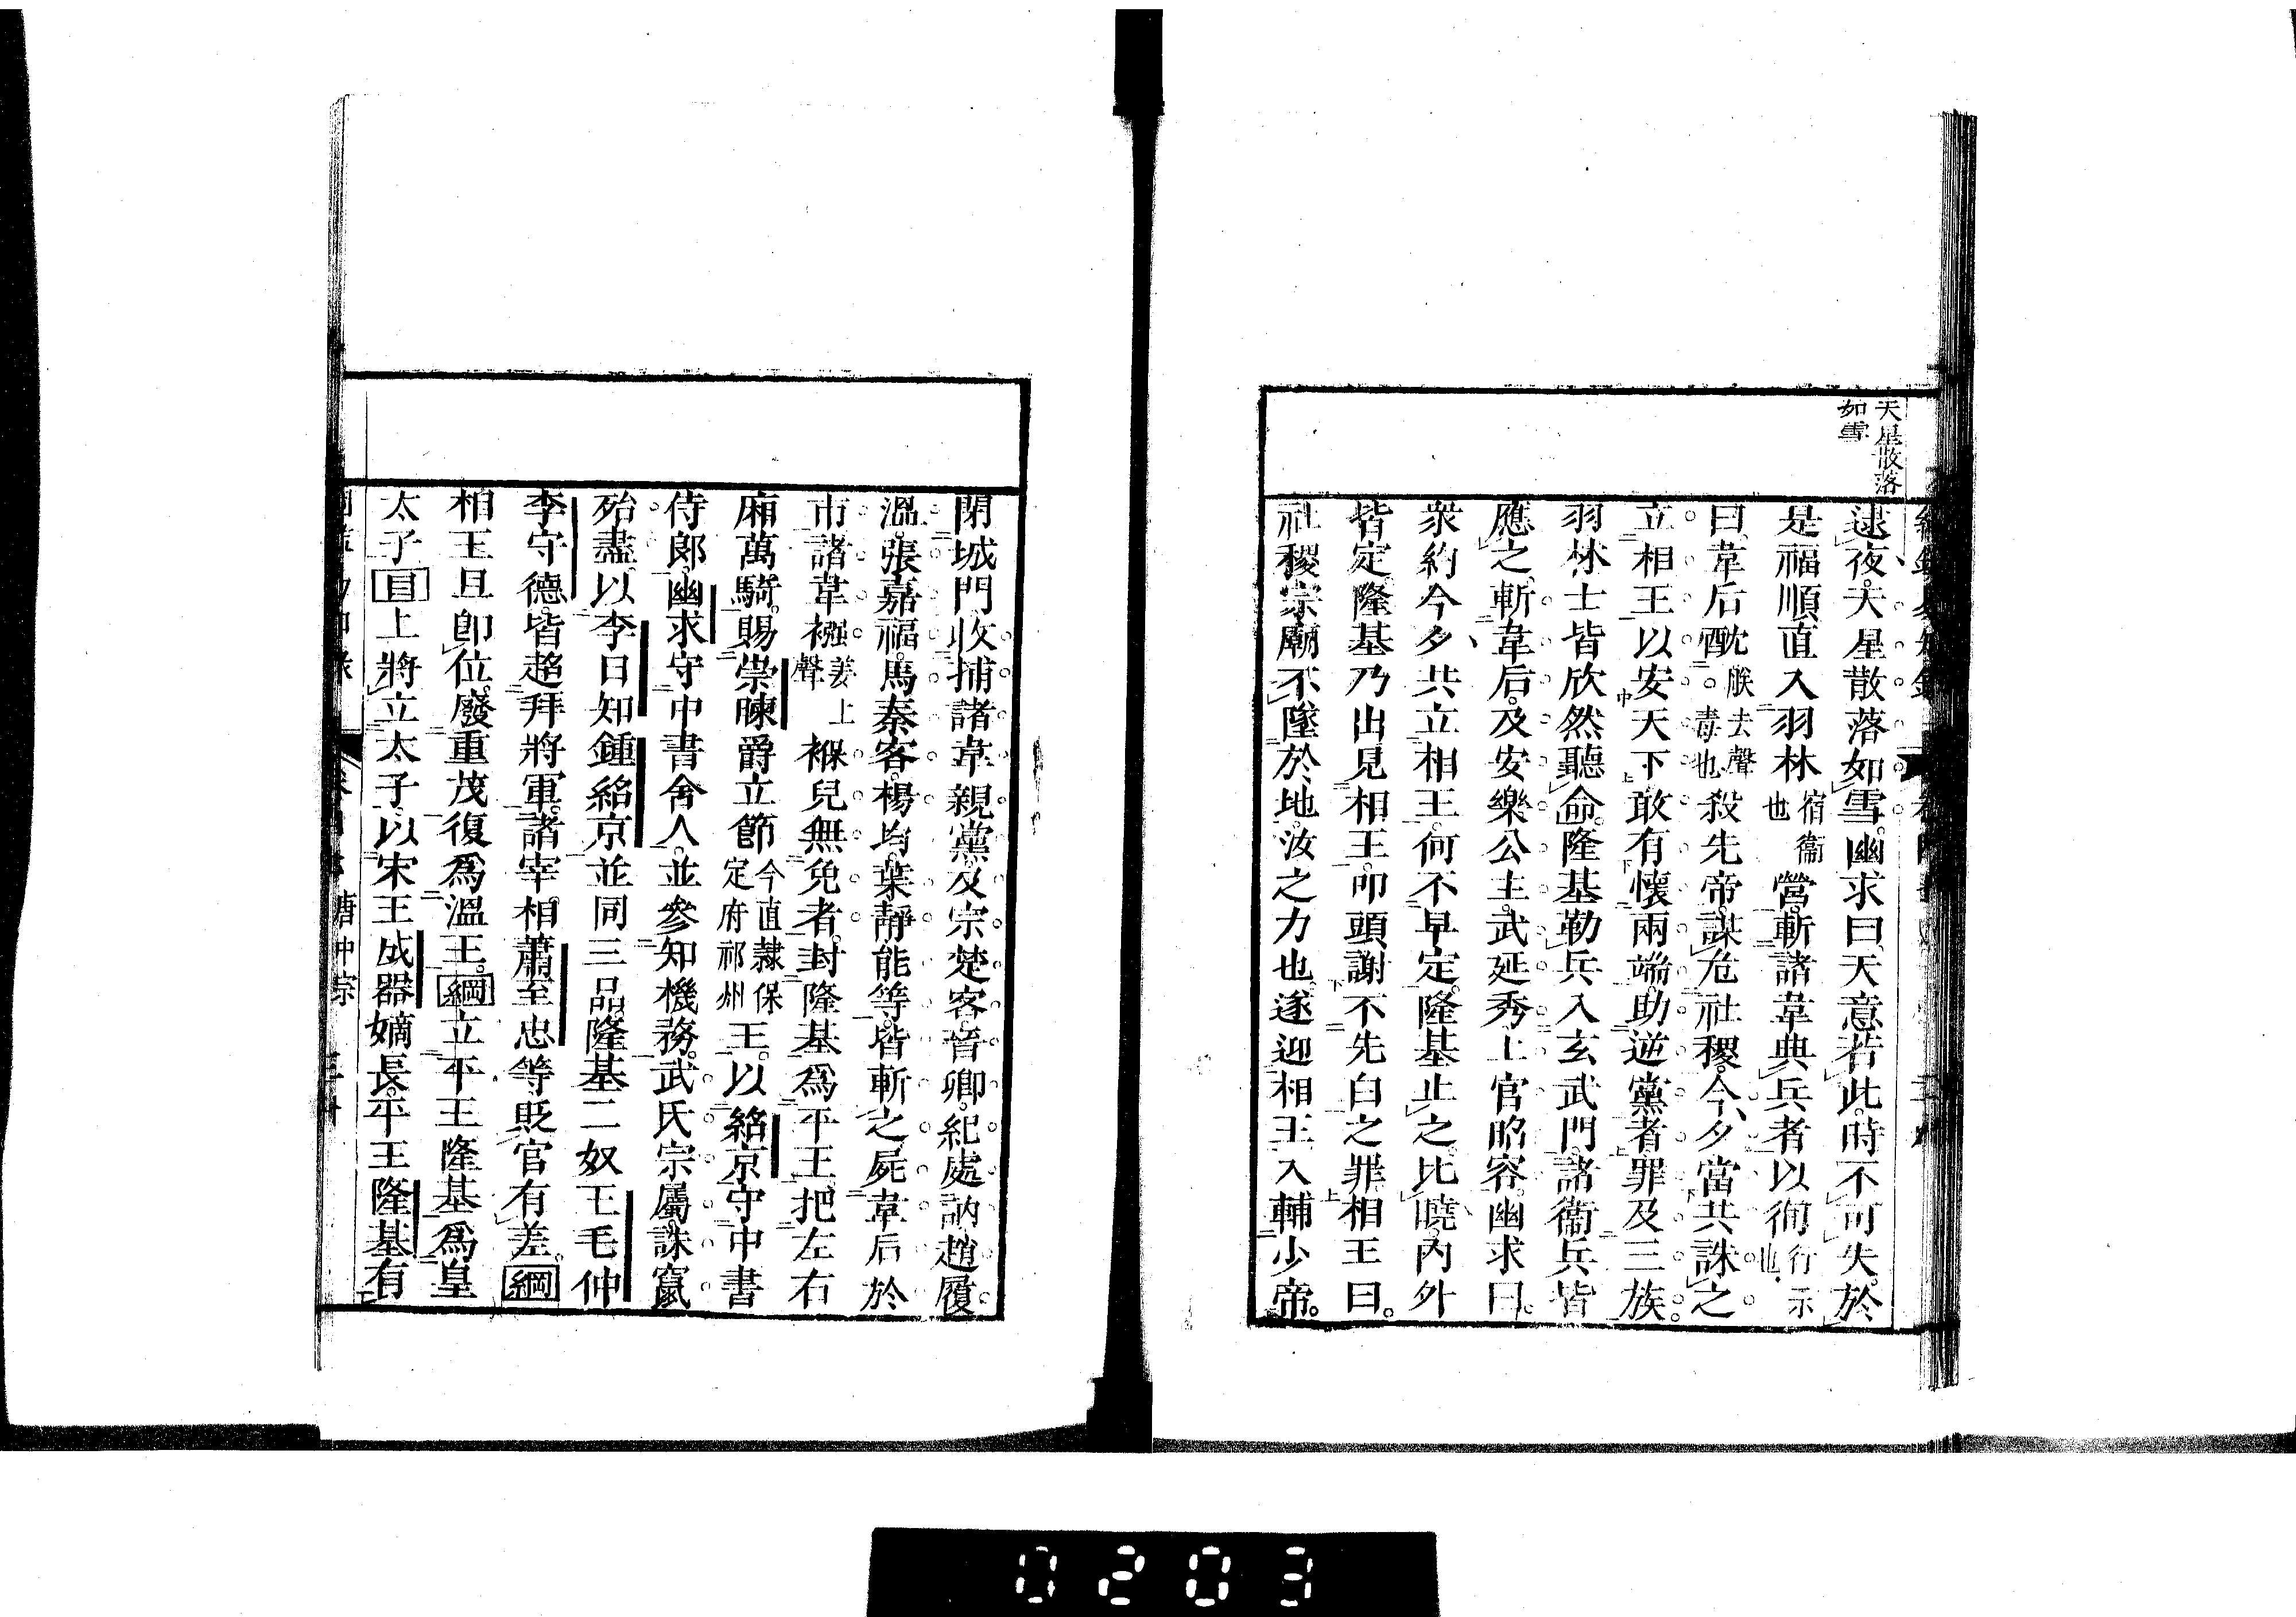 天星散落
如雪
逮夜。天星散落如雪。幽求曰、天意若此。時不可失。於
是福順直入羽林宿衞也營。斬諸韋典兵者以徇行示也
曰。韋后酖朕去聲。毒也殺先帝。謀危社稷。今夕當共誅之
立相王以安天下。敢有懷兩端。助逆黨者。罪及三族。
羽林士皆欣然聽命。隆基勒兵入玄武門。諸衞兵皆
應之、斬韋后。及安樂公主。武延秀。上官昭容。幽求曰。
衆約今夕共立相王。何不早定。隆基止之。比曉。內外
皆定。隆基乃出見相王。叩頭謝不先白之罪。相王曰。
社稷宗廟不墜於地。汝之力也。遂迎相王入輔少帝。
閉城門收捕諸韋親黨。及宗楚客。晉卿。紀處訥。趙履
溫。張嘉福。馬秦客。楊均。葉靜能等。皆斬之。屍韋后於
市。諸韋襁姜上聲褓兒無免者。封隆基爲平王。把左右
廂萬騎。賜崇暕爵立節今直隷保定府祁州王。以紹京守中書
侍郎。幽求守中書舍人。並參知機務。武氏宗屬。誅竄
殆盡。以李日知鍾紹京並同三品。隆基二奴王毛仲
李守德。皆超拜將軍。諸宰相蕭至忠等貶官有差。綱
相王旦卽位。廢重茂復爲溫王。綱立平王隆基爲皇
太子目上將立太子。以宋王成器嫡長。平王隆基有
唐中宗
0203